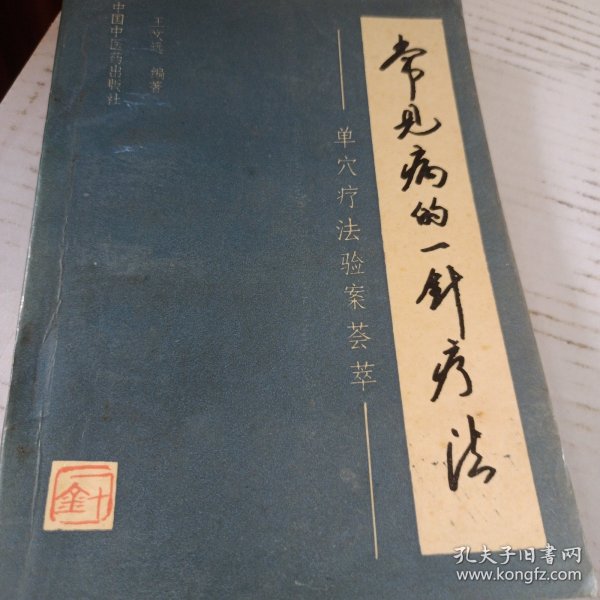 常见病的一针疗法
——单穴疗法验案荟萃——
王文远 编著
中国中医药出版社
一针
孔夫子旧书网
www.kongfz.com